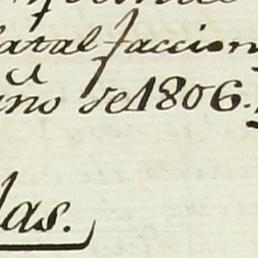 fatal faccion
año de 1806.
las.